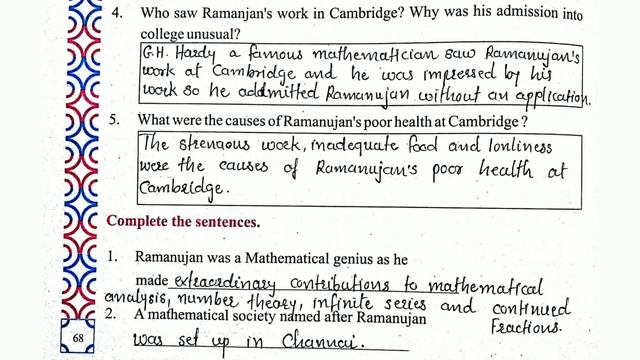 4. Who saw Ramanjan's work in Cambridge? Why was his admission into
college unusual?
G.H. Hardy a famous mathematician saw Ramanujan's
work at Cambridge and he was impressed by his
work so he addmitted Ramanujan without an application.
5. What were the causes of Ramanujan's poor health at Cambridge?
The strengous work, inadequate food and lonliness
were the causes of Ramanujan's poor health at
Cambridge.
Complete the sentences.
1. Ramanujan was a Mathematical genius as he
made extraordinary contributions to mathematical
analysis, number theory, infinite series and continued
Fractions.
2. A mathematical society named after Ramanujan
was set up in Channai.
68